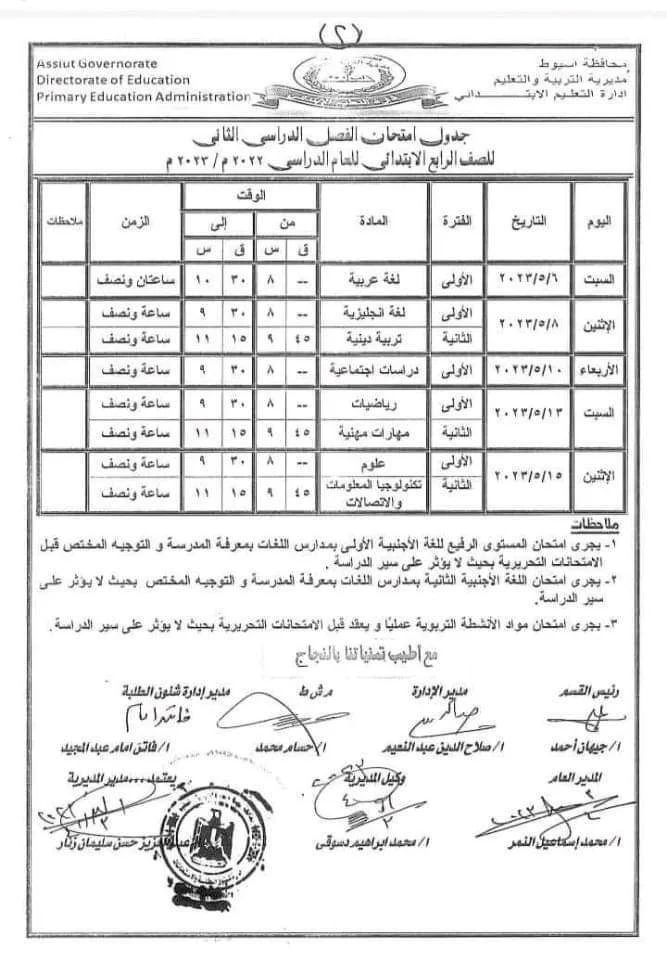 (٢)
Assiut Governorate
Directorate of Education
Primary Education Administration
محافظة اسيوط
مديرية التربية والتعليم
ادارة التعليم الابتدائي
جدول امتحان الفصل الدراسى الثانى
للصف الرابع الابتدائى للعام الدراسى ٢٠٢٢ م / ٢٠٢٣ م
اليوم التاريخ الفترة المادة الوقت الزمن ملاحظات
من إلى
ق س ق س
السبت ٢٠٢٣/٥/٦ الأولى لغة عربية -- ٨ ٣٠ ١٠ ساعتان ونصف
الإثنين ٢٠٢٣/٥/٨ الأولى لغة انجليزية -- ٨ ٣٠ ٩ ساعة ونصف
الثانية تربية دينية ٤٥ ٩ ١٥ ١١ ساعة ونصف
الأربعاء ٢٠٢٣/٥/١٠ الأولى دراسات اجتماعية -- ٨ ٣٠ ٩ ساعة ونصف
السبت ٢٠٢٣/٥/١٣ الأولى رياضيات -- ٨ ٣٠ ٩ ساعة ونصف
الثانية مهارات مهنية ٤٥ ٩ ١٥ ١١ ساعة ونصف
الإثنين ٢٠٢٣/٥/١٥ الأولى علوم -- ٨ ٣٠ ٩ ساعة ونصف
الثانية تكنولوجيا المعلومات والاتصالات ٤٥ ٩ ١٥ ١١ ساعة ونصف
ملاحظات
١- يجرى امتحان المستوى الرفيع للغة الأجنبية الأولى بمدارس اللغات بمعرفة المدرسة و التوجيه المختص قبل
الامتحانات التحريرية بحيث لا يؤثر على سير الدراسة .
٢- يجرى امتحان اللغة الأجنبية الثانية بمدارس اللغات بمعرفة المدرسة و التوجيه المختص بحيث لا يؤثر على
سير الدراسة.
٣- يجرى امتحان مواد الأنشطة التربوية عمليًا و يعقد قبل الامتحانات التحريرية بحيث لا يؤثر على سير الدراسة .
مع اطيب تمنياتنا بالنجاح
رئيس القسم مدير الإدارة م ش ط مدير إدارة شئون الطلبة
ا/ جيهان أحمد ا/ صلاح الدين عبد النعيم ا/ حسام محمد ا/ فاتن امام عبد المجيد
المدير العام وكيل المديرية يعتمد... مدير المديرية
ا/ محمد إسماعيل النمر ا/ محمد ابراهيم دسوقى حسن سليمان